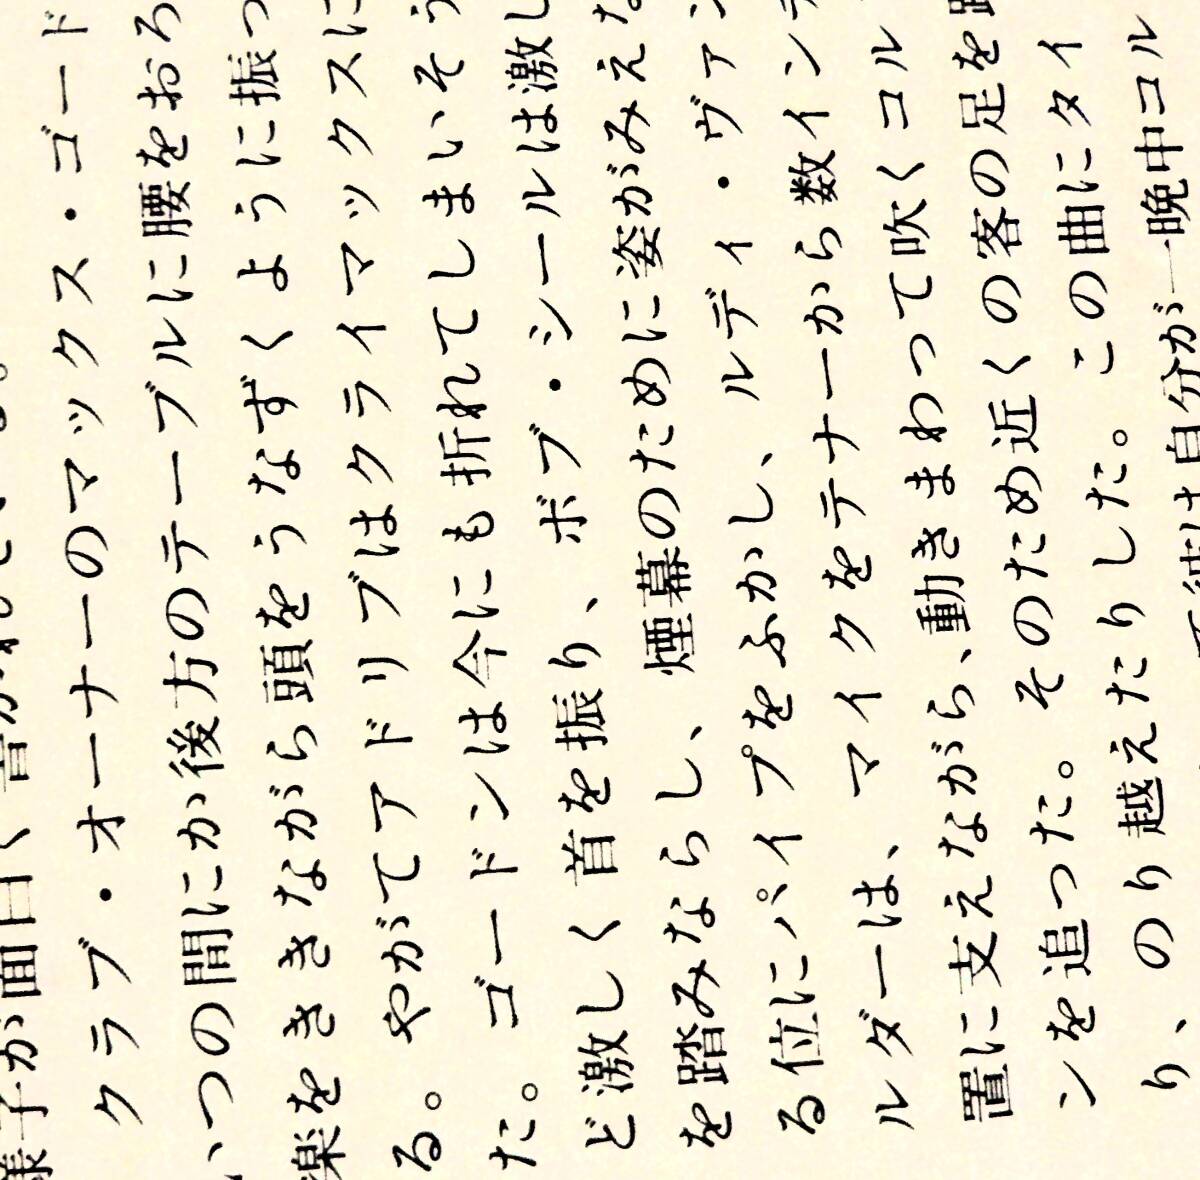 様子が面白く書かれている。
クラブ・オーナーのマックス・ゴード
いつの間にか後方のテーブルに腰をおろ
楽をききながら頭をうなずくように振っ
る。やがてアドリブはクライマックスに
た。ゴードンは今にも折れてしまいそう
ど激しく首を振り、ボブ・シールは激し
を踏みならし、煙幕のために姿がみえな
る位にパイプをふかし、ルディ・ヴァン
ルダーは、マイクをテナーから数インチ
置に支えながら、動きまわって吹くコル
ンを追った。そのため近くの客の足を踏
り、のり越えたりした。この曲にタイ
彼は自分が一晩中コル